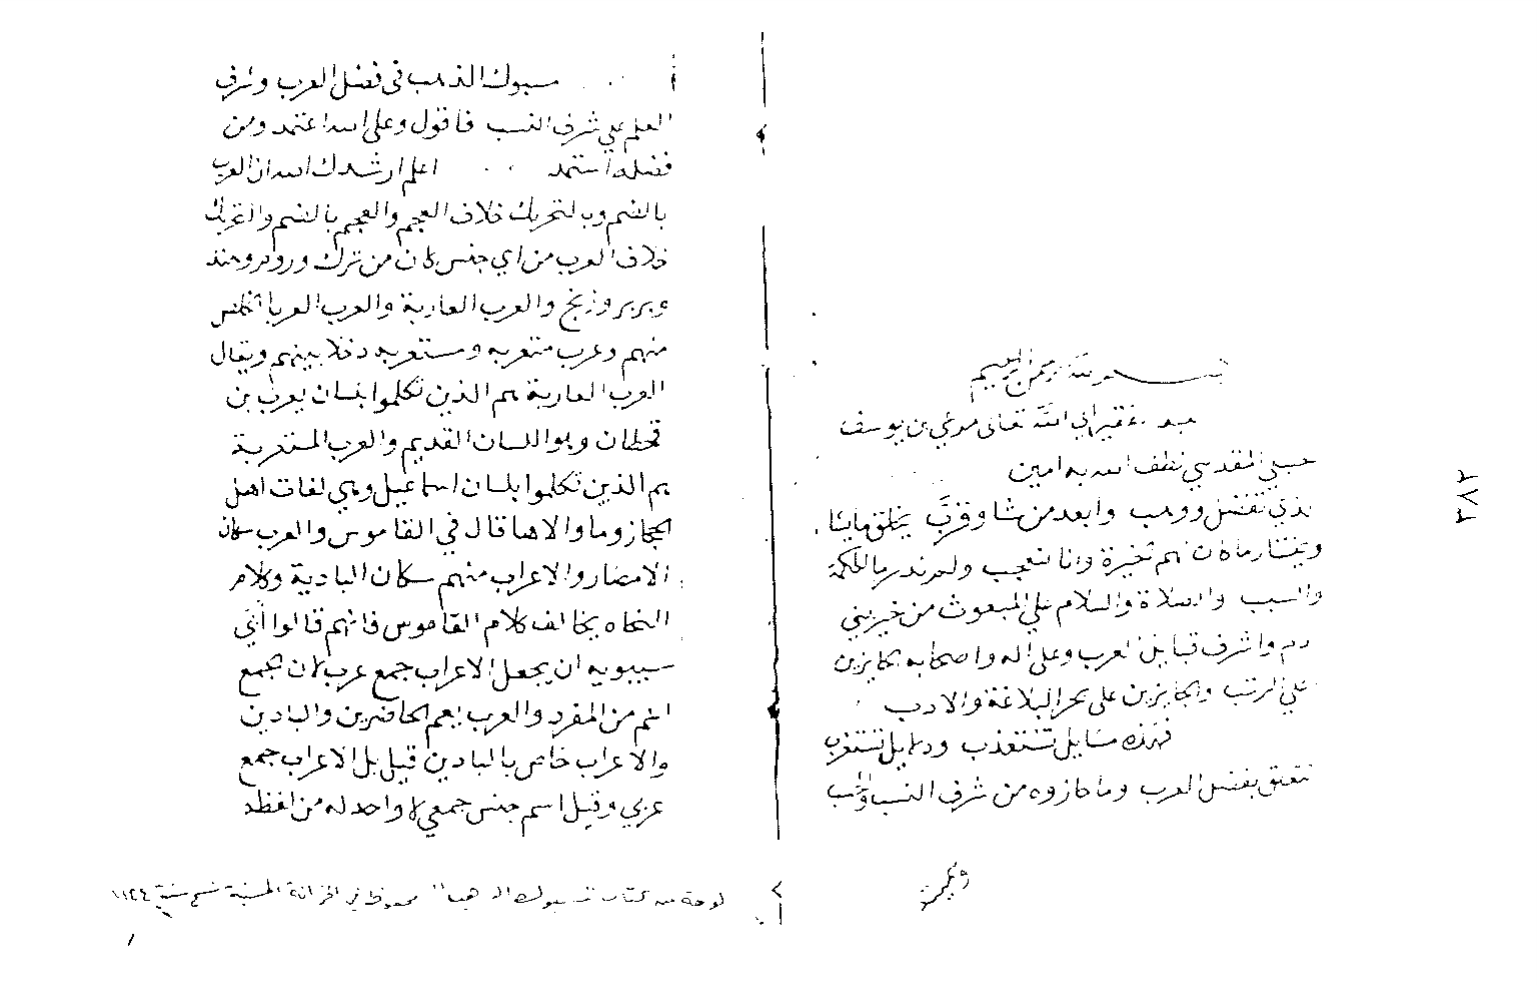 بسم الله الرحمن الرحيم
فقير الى الله تعالى مرعي بن يوسف
المقدسي لطف الله به امين
تفضل ووهب وابعد من شا وقرب يخلق ما يشا
ويختار ما كان لهم الخيرة وانا نتعجب ولم ندر ما الحكمة
والسبب والصلاة والسلام على المبعوث من خير بني
واشرف قبايل العرب وعلى اله واصحابه الحايزين
على الرتب والجايزين على بحر البلاغة والادب
فهذه مسايل تستعذب ودلايل تستغرب
تتعلق بفضل العرب وما حازوه من شرف النسب والحسب
مسبوك الذهب في فضل العرب وشرف
العلم على شرف النسب فاقول وعلى الله اعتمد ومن
فضله استمد اعلم ارشدك الله ان العرب
بالضم وبالتحريك خلاف العجم والعجم بالضم والتحريك
خلاف العرب من اي جنس كان من ترك وروم وهند
وبربر وزنج والعرب العاربة والعرب العربا الخلص
منهم وعرب متعربه ومستعربه دخلا بينهم ويقال
العرب العاربة هم الذين تكلموا بلسان يعرب بن
قحطان وهو اللسان القديم والعرب المستعربة
هم الذين تكلموا بلسان اسماعيل وهي لغات اهل
الحجاز وما والاها قال في القاموس والعرب سكان
الامصار والاعراب منهم سكان البادية وكلام
النحاه يخالف كلام القاموس فانهم قالوا ابى
سيبويه ان يجعل الاعراب جمع عرب لان الجمع
اعم من المفرد والعرب يعم الحاضرين والبادين
والاعراب خاص بالبادين قيل بل الاعراب جمع
عربي وقيل اسم جنس جمعي لا واحد له من لفظه
لوحة من كتاب مسبوك الذهب محفوظ في الخزانة الحسنية نسخ سنة ١١٢٤